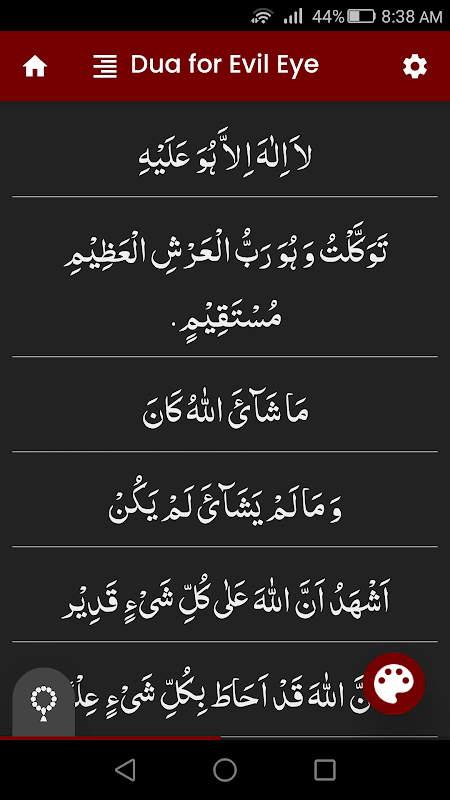 44% 8:38 AM
Dua for Evil Eye
لاَ اِلٰهَ اِلاَّ هُوَ عَلَيْهِ
تَوَكَّلْتُ وَ هُوَ رَبُّ الْعَرْشِ الْعَظِيْمِ
مُسْتَقِيْمٍ.
مَا شَآئَ اللهُ كَانَ
وَ مَا لَمْ يَشَآئَ لَمْ يَكُنْ
اَشْهَدُ اَنَّ اللهَ عَلٰى كُلِّ شَیْءٍ قَدِيْر
اللهَ قَدْ اَحَاطَ بِكُلِّ شَیْءٍ